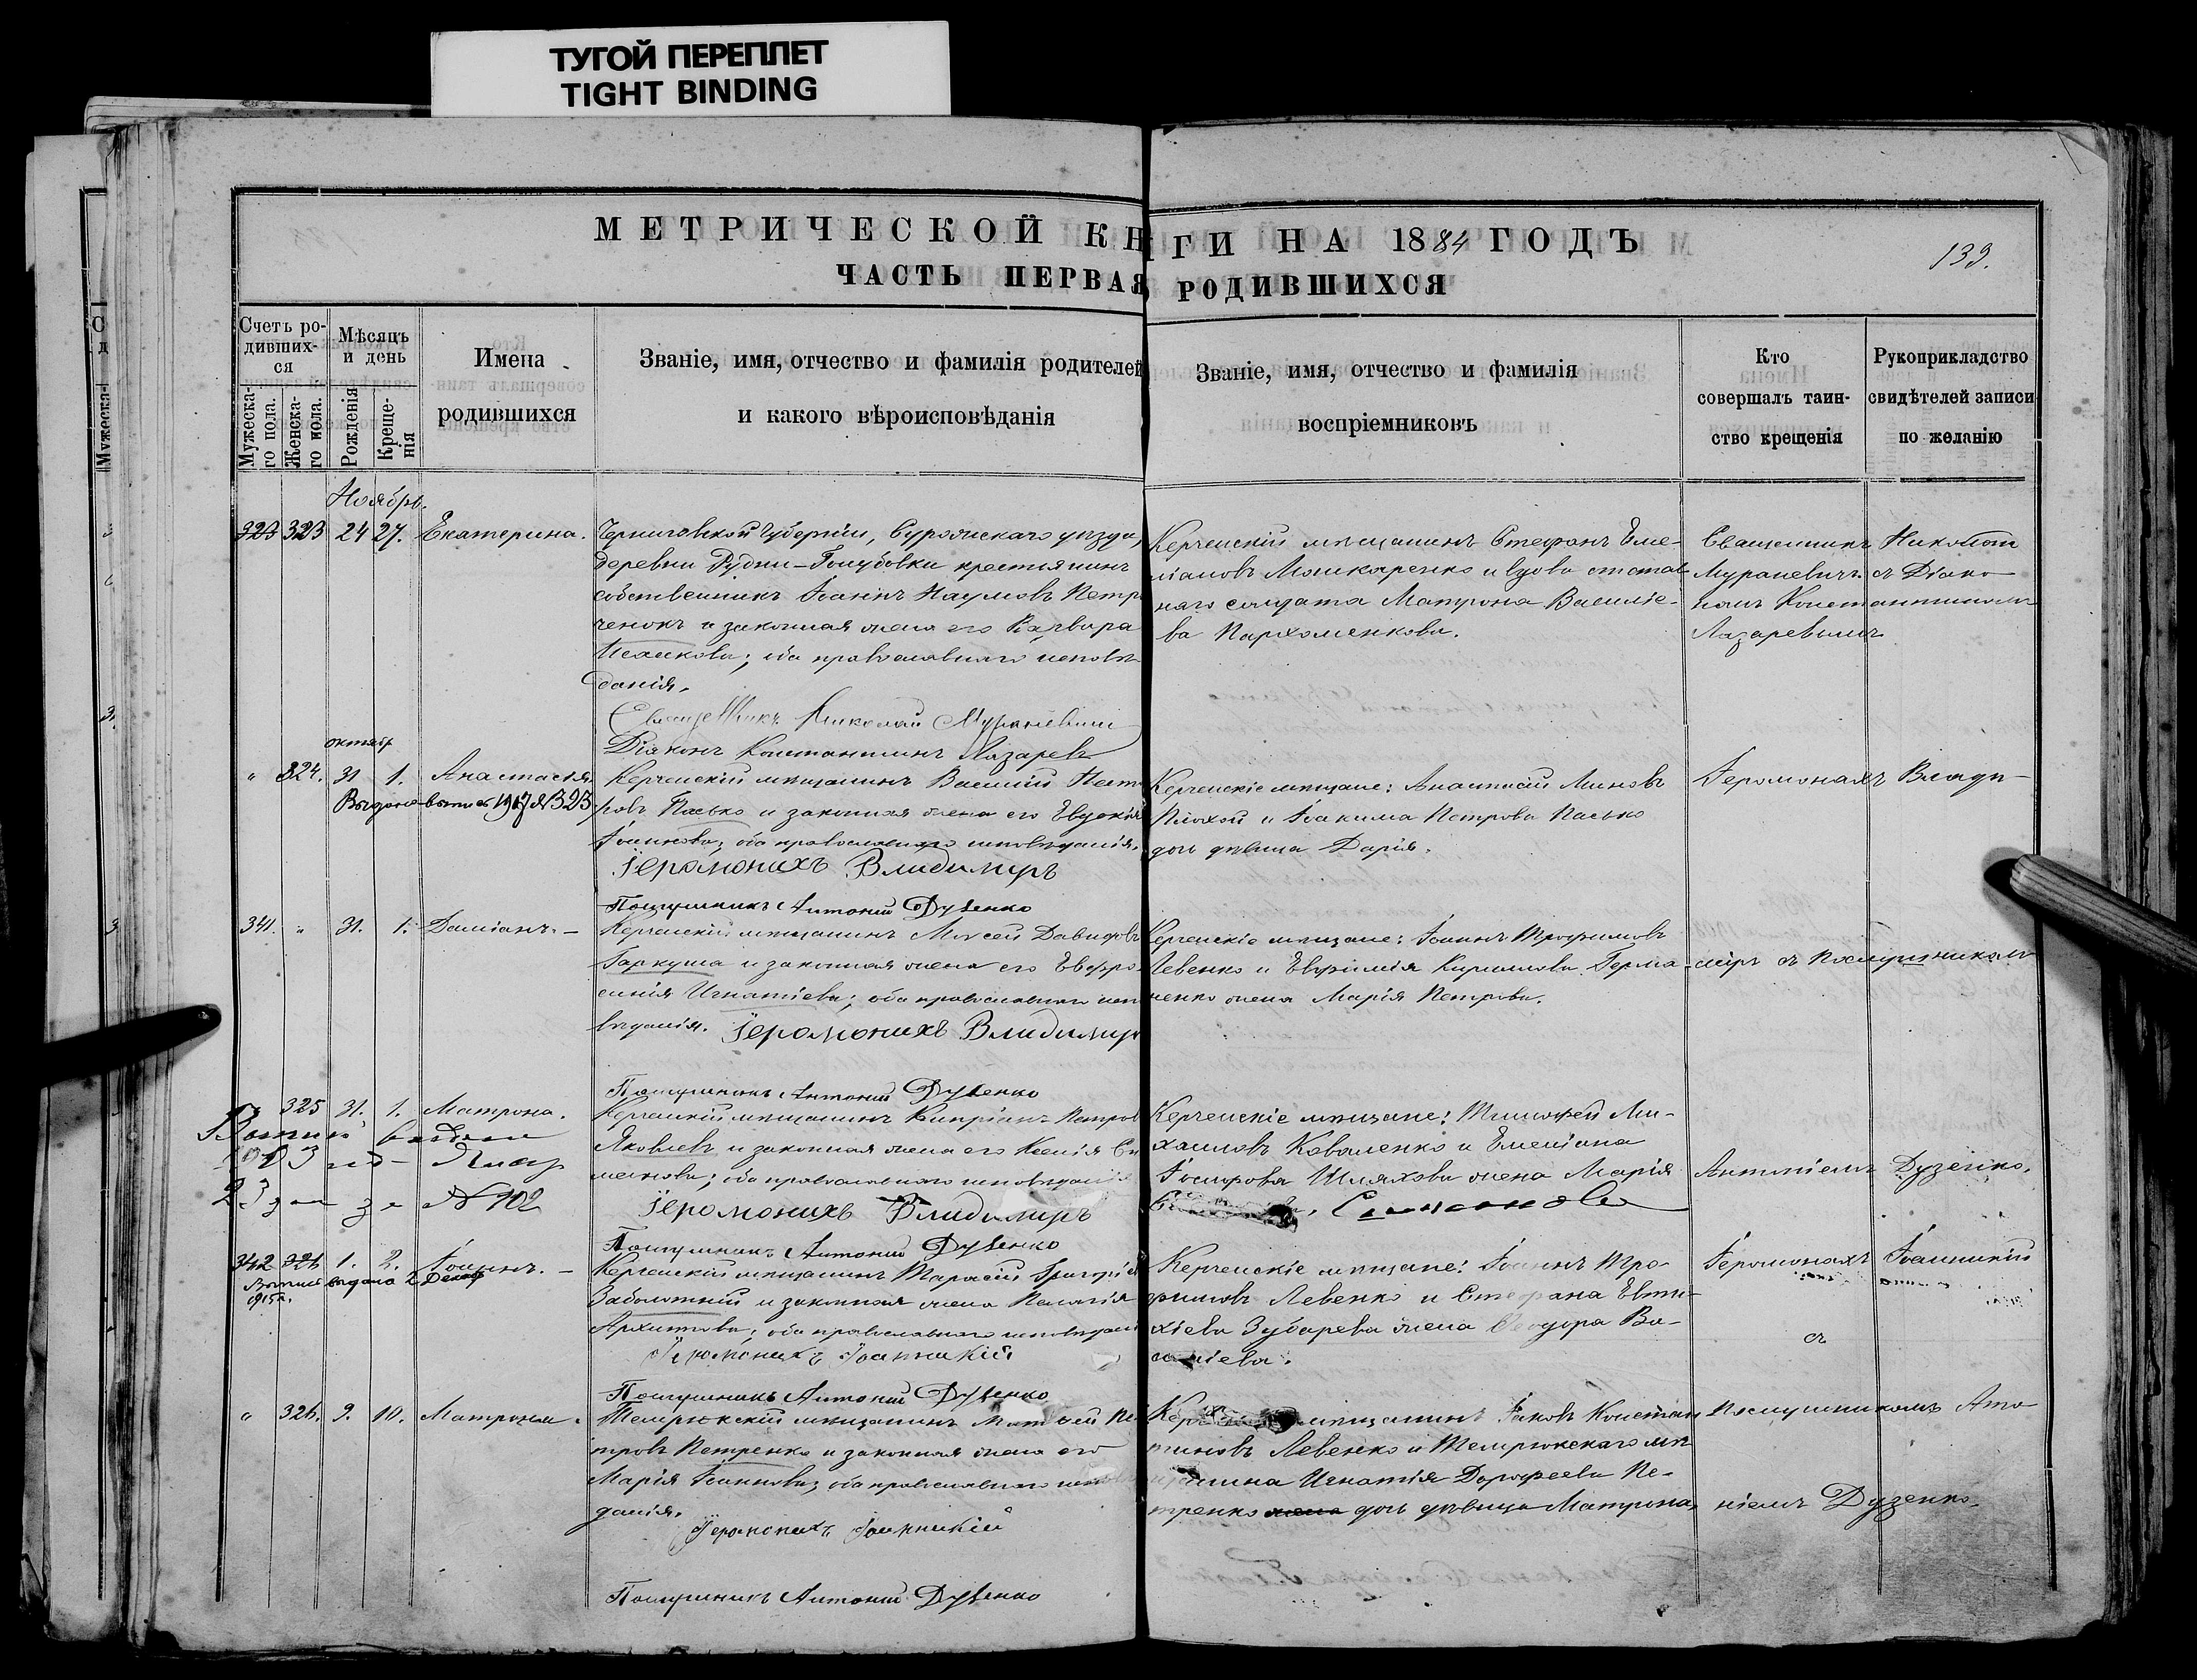 ТУГОЙ ПЕРЕПЛЕТ
TIGHT BINDING
МЕТРИЧЕСКОЙ КН
ГИ НА 1884 ГОДЪ
139.
ЧАСТЬ ПЕРВАЯ
РОДИВШИХСЯ
Счетъ ро-
дивших-
ся
Мужеска-
го пола.
Женска-
го пола.
Мѣсяцъ
и день
Рожденія
Креще-
нія
Имена
родившихся
Званіе, имя, отчество и фамилія родителей
и какого вѣроисповѣданія
Званіе, имя, отчество и фамилія
воспріемниковъ
Кто
совершалъ таин-
ство крещенія
Рукоприкладство
свидѣтелей записи
по желанію
Ноябрь.
323 323 24 27. Екатерина.
Черниговской Губерніи, Суражскаго уѣзда,
деревни Рудни-Голубовки крестьянинъ
собственникъ Іоаннъ Наумовъ Петр
ченокъ и законная жена его Варвара
Исаакова; оба православнаго исповѣ
данія.
Священникъ Николай Мураневичъ
Діаконъ Константинъ Лазаревъ
Керченскій мѣщанинъ Стефанъ Еме-
ліановъ Мошкаренко и вдова отстав
наго солдата Матрона Василіе-
ва Пархоменкова.
Священникъ Николай
Мураневичъ съ Діако-
номъ Константиномъ
Лазаревымъ
октябр
" 324. 31 1. Анастасія.
Выдана выпись 1917 № 323
Керченскій мѣщанинъ Василій Пет
ровъ Пасько и законная жена его Евдокія
Іоаннова; оба православнаго исповѣданія.
Іеромонахъ Владимиръ
Послушникъ Антоній Дузенко
Керченскіе мѣщане: Анастасій Миновъ
Плохой и Іоакима Петрова Пасько
дочь дѣвица Дарія.
Іеромонахъ Влади-
341. " 31. 1. Даміанъ. -
Керченскій мѣщанинъ Моѵсей Давидовъ
Гаркуша и законная жена его Евфро-
синія Игнатіева; оба православнаго испо
вѣданія. Іеромонахъ Владимир
Послушникъ Антоній Дузенко
Керченскіе мѣщане: Іоаннъ Трофимовъ
Левенко и Евфимія Кириллова Герма-
ненко жена Марія Петрова.
миръ съ Послушникомъ
325 31. 1. Матрона.
1903 год
23 дня за № 102
Керченскій мѣщанинъ Кипріанъ Петров
Яковлевъ и законная жена его Ксенія Си
меонова; оба православнаго исповѣданія
Іеромонахъ Владимиръ
Послушникъ Антоній Дузенко
Керченскіе мѣщане: Тимофей Ми-
хаиловъ Коваленко и Емеліана
Шляхова жена Марія
Симонова
Антоніемъ Дузенко.
342 326 1. 2. Іоаннъ. -
Выпись выдана 2 Декаб
1915 г.
Керченскій мѣщанинъ Тарасій Григоріев
Заболотній и законная жена Пелагія
Архипова; оба православнаго исповѣдані
Іеромонахъ Іоанникій
Послушникъ Антоній Дузенко
Керченскіе мѣщане: Іоаннъ Тро-
фимовъ Левенко и Стефана Евти-
хіева Зубарева жена Ѳеодора Ва-
силіева.
Іеромонахъ Іоанникій
съ
" 326. 9. 10. Матрона.
Темрюкскій мѣщанинъ Матвей Пе
тровъ Петренко и законная жена его
Марія Іоаннова; оба православнаго испо
данія.
Іеромонахъ Іоанникій
Послушникъ Антоній Дузенко
мѣщанинъ Іаковъ Констан
тиновъ Левенко и Темрюкскаго мѣ
щанина Игнатія Дорофеева Пе-
тренко жена дочь дѣвица Матрона
Послушникомъ Анто-
ніемъ Дузенко.